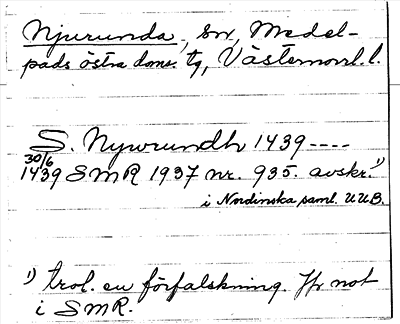 Njurunda, sn, Medel-
pads östra doms. tg, Västernorrl. l.
S. Nywrundh 1439 ----
30/6
1439 SMR 1937 nr. 935. avskr. 1)
i Nordinska saml. UUB.
1) trol. en förfalskning. Jfr not
i SMR.